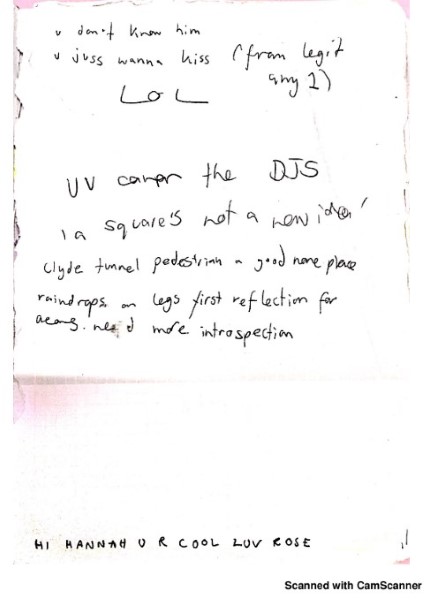 u don't know him
u juss wanna kiss (from legit
any 1)
LOL
UV the DJS
a square's not a new idea'
clyde tunnel pedestrian a good place
raindrops on legs first reflection for
need more introspection
HI HANNAH U R COOL LUV ROSE
Scanned with CamScanner